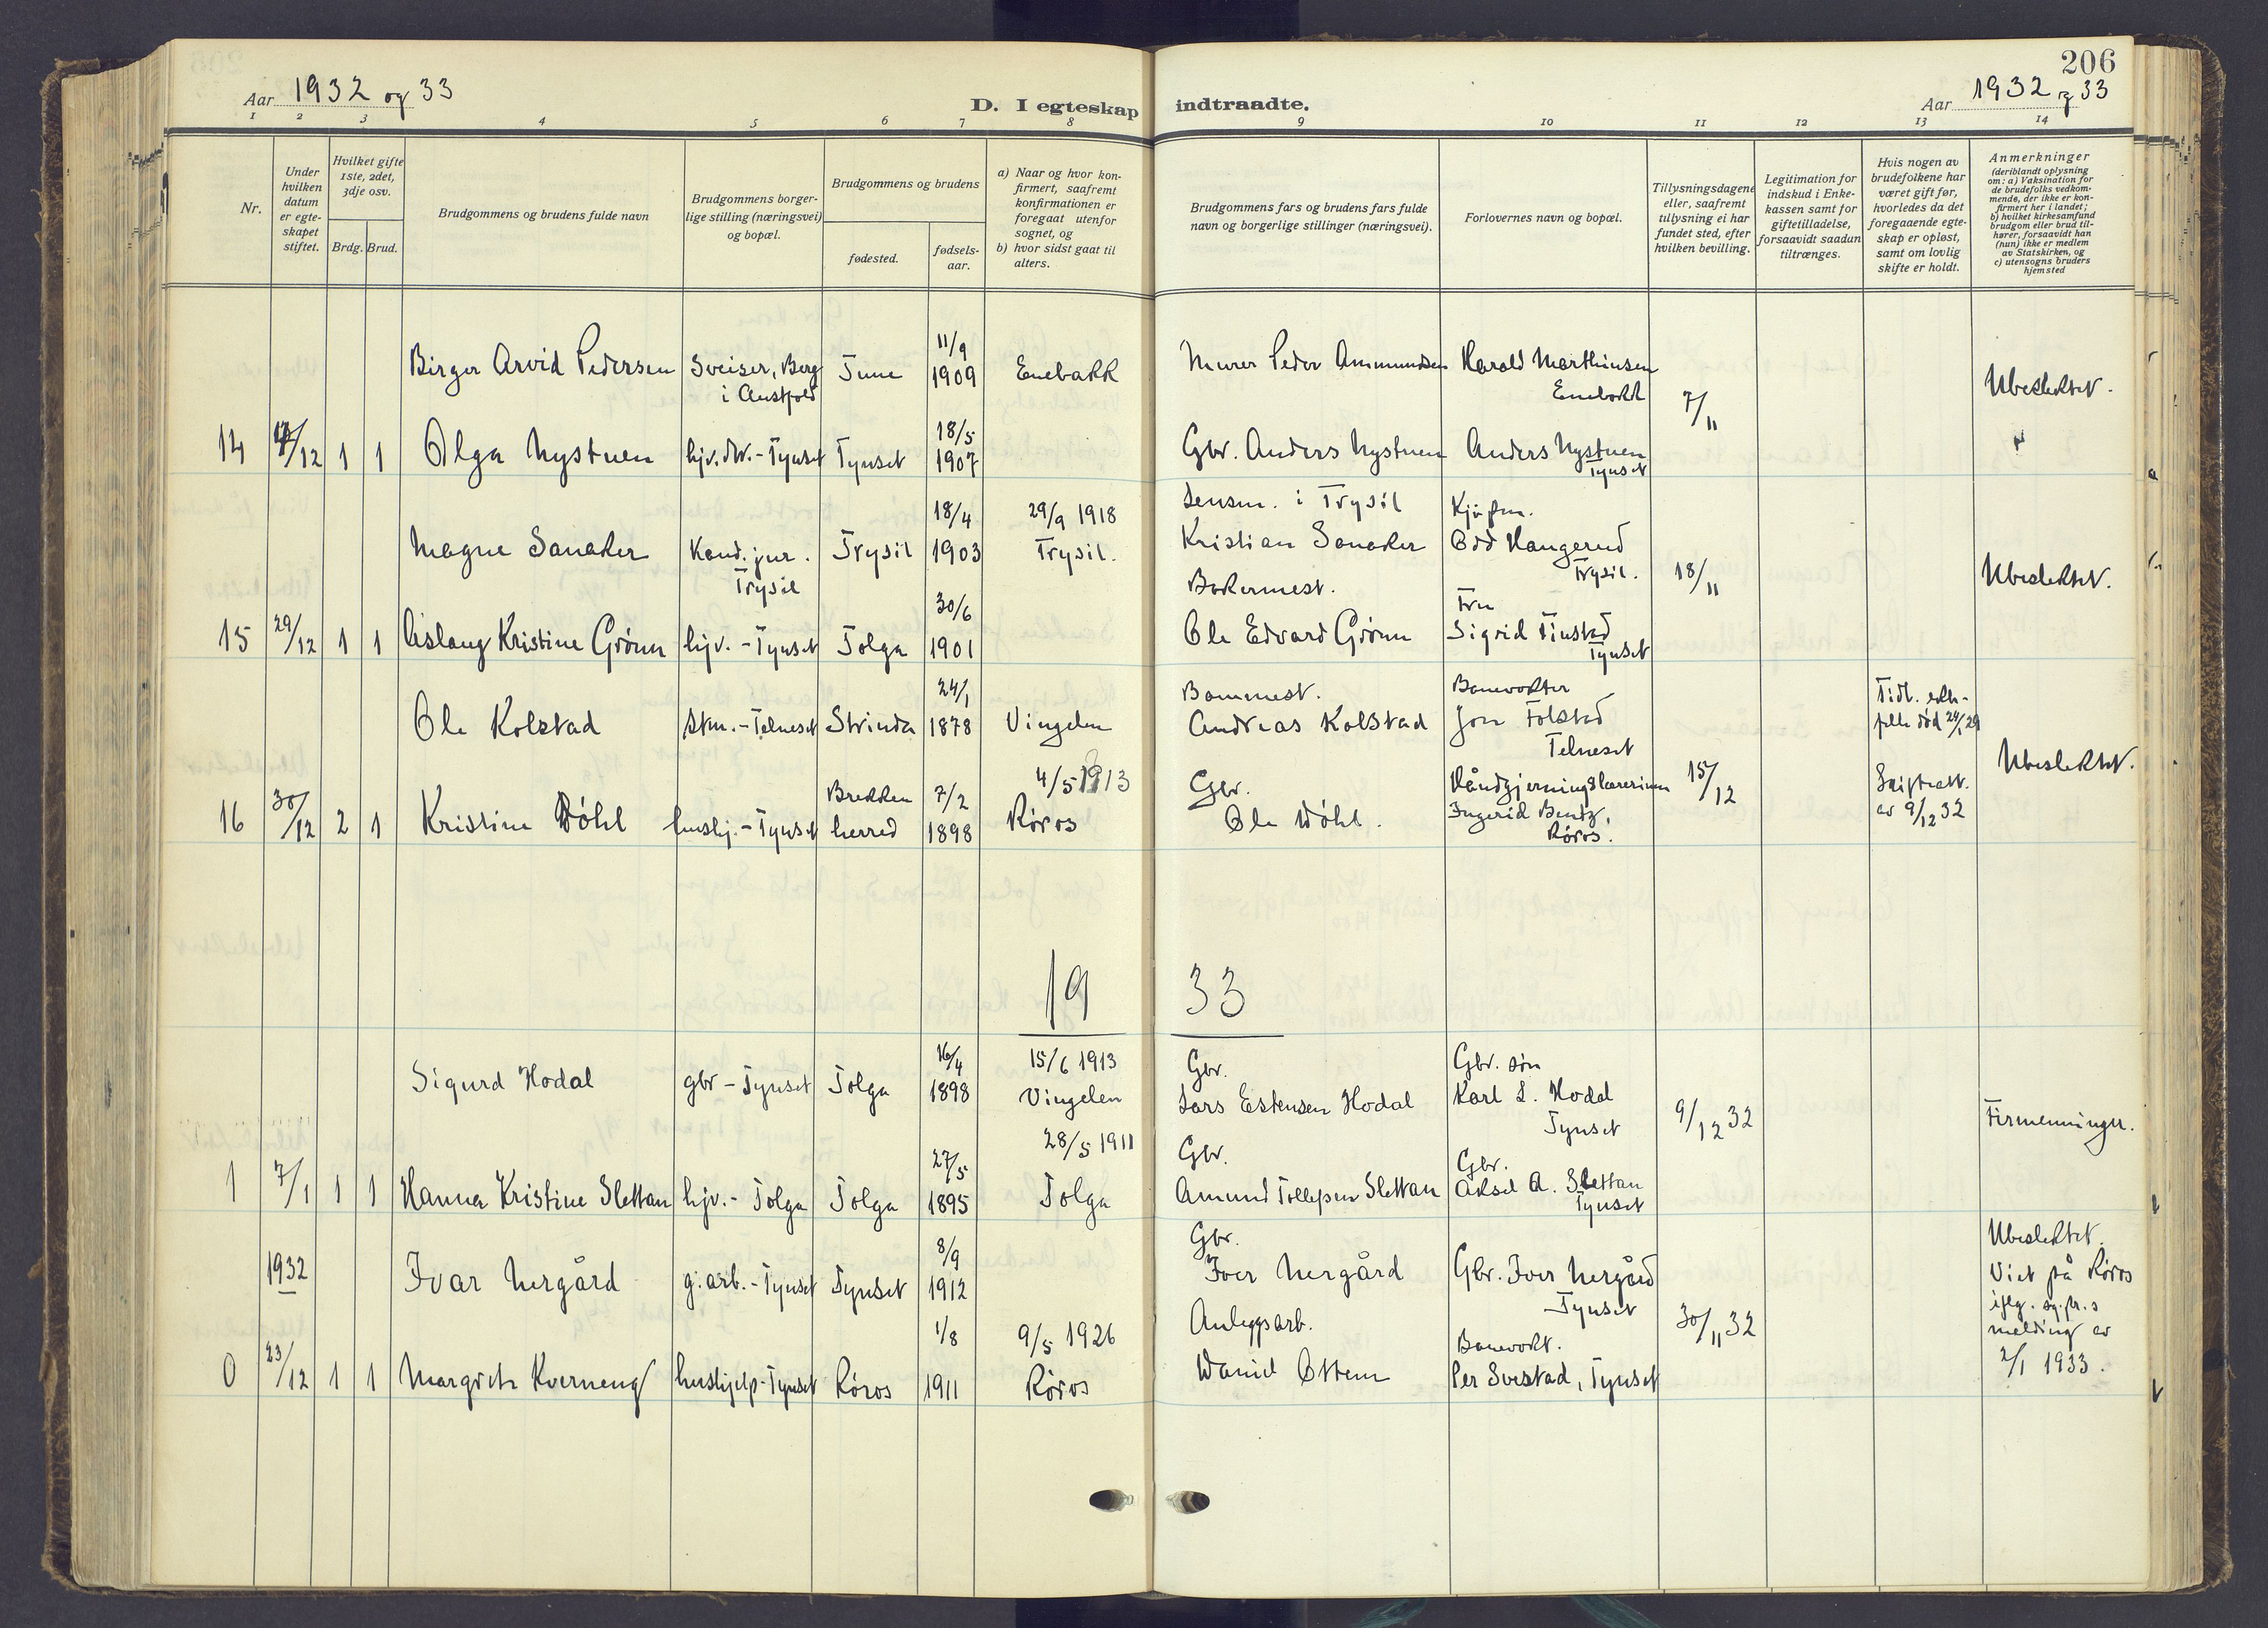 206
Aar 1932 og 33
D. I egteskap indtraadte.
Aar 1932 og 33
1 2 3 4 5 6 7 8 9 10 11 12 13 14
Nr.
Under hvilken datum er egteskapet stiftet.
Hvilket gifte 1ste, 2det, 3dje osv.
Brdg. Brud.
Brudgommens og brudens fulde navn
Brudgommens borgerlige stilling (næringsvei) og bopæl.
Brudgommens og brudens
fødested.
fødselsaar.
a) Naar og hvor konfirmert, saafremt konfirmationen er foregaat utenfor sognet, og
b) hvor sidst gaat til alters.
Brudgommens fars og brudens fars fulde navn og borgerlige stillinger (næringsvei).
Forlovernes navn og bopæl.
Tillysningsdagene eller, saafremt tillysning ei har fundet sted, efter hvilken bevilling.
Legitimation for indskud i Enkekassen samt for giftetilladelse, forsaavidt saadan tiltrænges.
Hvis nogen av brudefolkene har været gift før, hvorledes da det foregaaende egteskap er opløst, samt om lovlig skifte er holdt.
Anmerkninger
(deriblandt oplysning om: a) Vaksination for de brudefolks vedkommende, der ikke er konfirmert her i landet;
b) hvilket kirkesamfund brudgom eller brud tilhører, forsaavidt han (hun) ikke er medlem av Statskirken, og
c) utensogns bruders hjemsted
Birger Arvid Pedersen Sveiser, Berg i Austfold Tune 11/9 1909 Enebakk Murer Peder Ammundsen Harald Marthinsen Enebakk 7/11 Ubeslektet.
14 /12 1 1 Olga Nystuen hjv. dtr. - Tynset Tynset 18/5 1907 Gbr. Anders Nystuen Anders Nystuen Tynset
Magne Sanaker Kand. jur. Trysil Trysil 18/4 1903 29/9 1918 Trysil. Lensm. i Trysil Kristian Sanaker Kjøpm. Odd Haugerud Trysil. 18/11 Ubeslektet.
15 29/12 1 1 Aslaug Kristine Grønn hjv. - Tynset Tolga 30/6 1901 Bakermest. Ole Edvard Grønn Fru Sigrid Tinstad Tynset
Ole Kolstad stm. - Telneset Strinda 24/1 1878 Vingelen Banemest. Andreas Kolstad Banevokter Jon Folstad Telneset 15/12 Tidl. ekte- felle død 24/1 29 Ubeslektet.
16 30/12 2 1 Kristine Døhl hushj. - Tynset Brekken herred 7/2 1898 4/5 1913 Røros Gbr. Ole Døhl. Håndgjerningslærerinne Ingerid Bentz, Røros. Skifteatt. av 9/12 32
19 33
Sigurd Hodal gbr - Tynset Tolga 16/4 1898 15/6 1913 Vingelen Gbr. Lars Estensen Hodal Gbr. søn Karl L. Hodal Tynset 9/12 32 Firmenninger.
1 7/1 1 1 Hanna Kristine Slettan hjv. - Tolga Tolga 27/5 1895 28/5 1911 Tolga Gbr. Amund Tollefsen Slettan Gbr. Aksel A. Slettan Tynset
1932 Ivar Nergård g. arb. - Tynset Tynset 8/9 1912 Gbr. Iver Nergård Gbr. Iver Nergård Tynset 30/11 32 Ubeslektet. Viet på Røros iflg. sg.pr.s melding av 2/1 1933.
0 23/12 1 1 Margith Kverneng hushjelp - Tynset Røros 1/8 1911 9/5 1926 Røros Anleggsarb. Daniel Øttem Banevokt. Per Svestad, Tynset